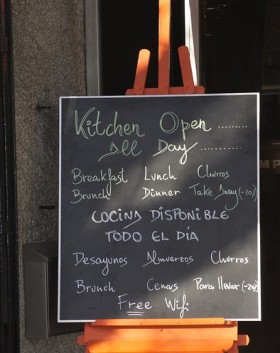 Kitchen Open ........
All Day ..........
Breakfast Lunch Churros
Brunch Dinner Take Away (-20)
COCINA DISPONIBLE
TODO EL DÍA
Desayunos Almuerzos Churros
Brunch Cenas Para llevar (-20)
Free Wifi